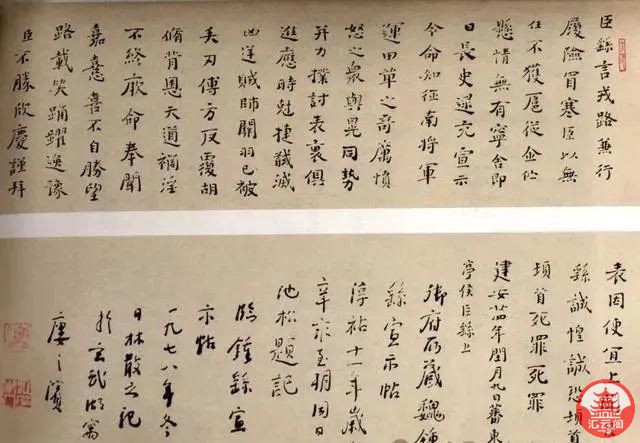 臣繇言戎路兼行
履險冒寒臣以無
任不獲扈從企佇
懸情無有寧舍即
日長史逮充宣示
令命知征南將軍
運田單之奇厲憤
怒之衆與晃同勢
并力撲討表裏俱
進應時尅捷馘滅
凶逆賊帥關羽已被
矢刃傅方反覆胡
脩背恩天道禍淫
不終厥命奉聞
嘉憙喜不自勝望
路載笑踊躍逸豫
臣不勝欣慶謹拜
表因便宜上
繇誠惶誠恐頓首
頓首死罪死罪
建安廿四年閏月九日蕃東
亭侯臣繇上
御府所藏魏鍾
繇宣示帖
淳祐十一年歲
辛亥月日
池松題記
臨鍾繇宣
示帖
一九七八年冬
日林散之記
於玄武湖寓
廔之濱
汇云阁